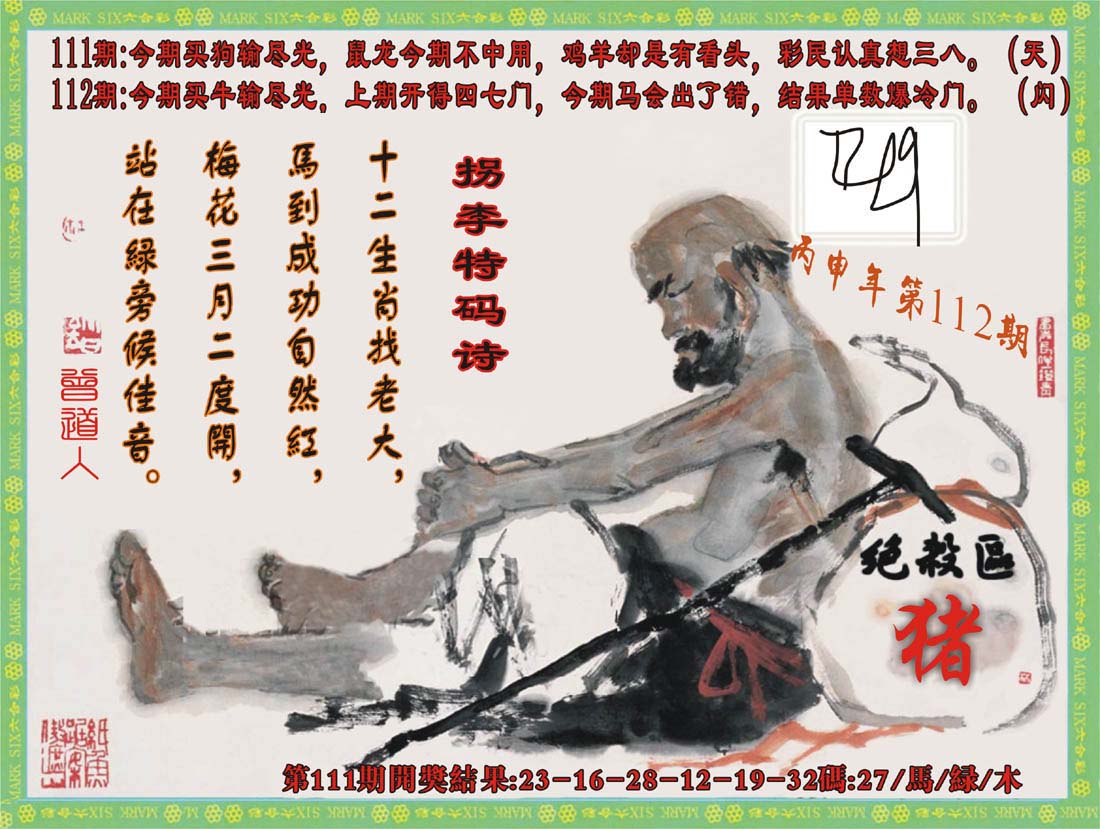 MARK SIX六合彩 MARK SIX六合彩 MARK SIX六合彩 MARK SIX六合彩 MARK SIX六合彩 MARK SIX六合彩
111期:今期买狗输尽光，鼠龙今期不中用，鸡羊却是有看头，彩民认真想三八。（天）
112期:今期买牛输尽光，上期开得四七门，今期马会出了错，结果单数爆冷门。（闪）
拐李特码诗
十二生肖找老大，
馬到成功自然紅，
梅花三月二度開，
站在緑旁候佳音。
曾道人
丙申年第112期
绝殺區
猪
第111期開獎結果:23-16-28-12-19-32碼:27/馬/緑/木